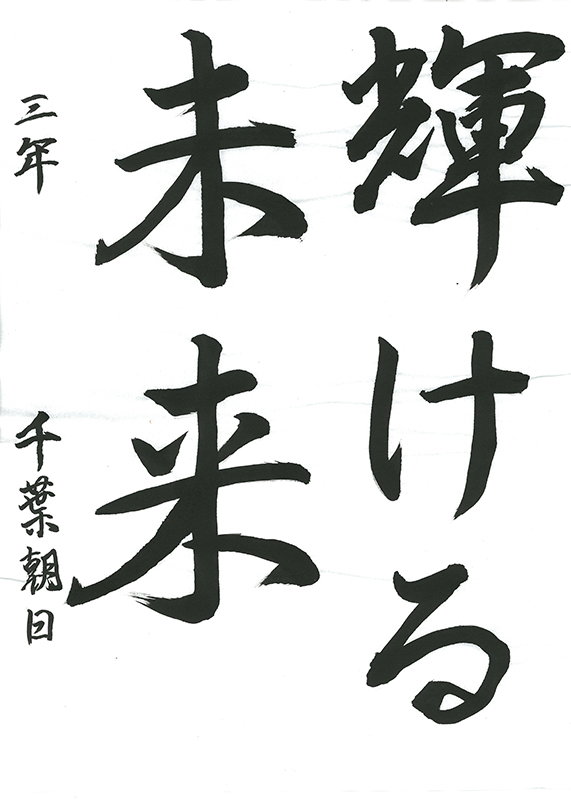 輝ける
未来
三年 千葉朝日